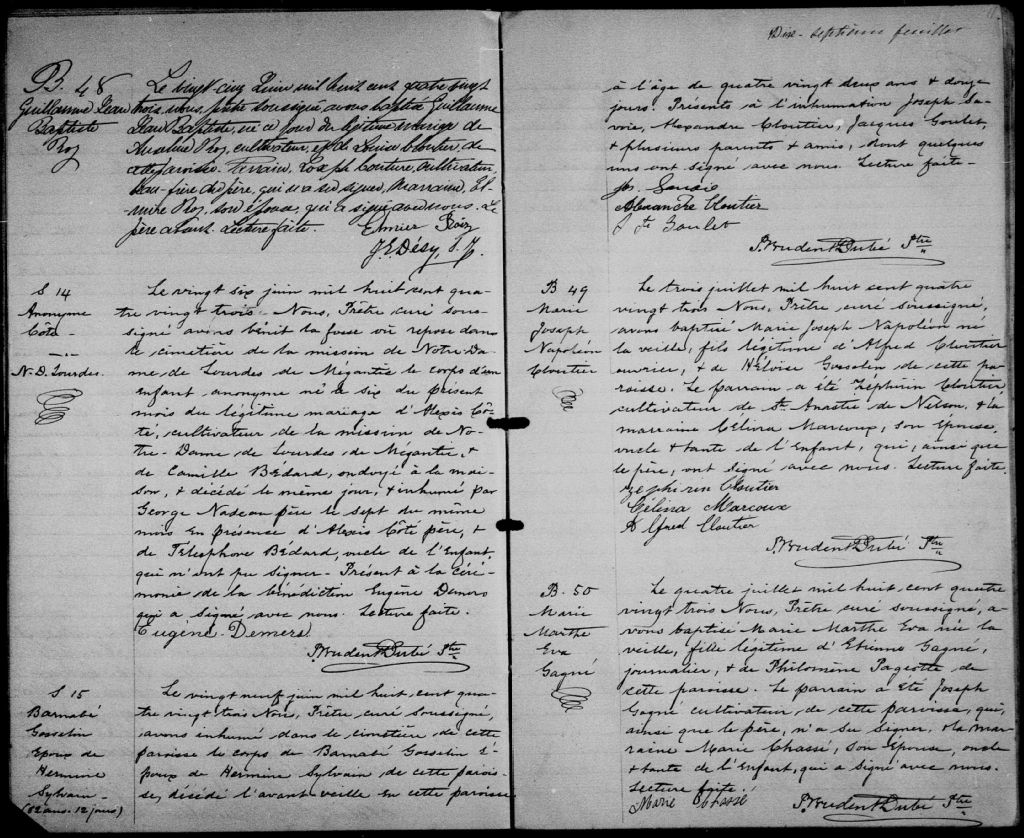 B. 48
Guillaume Jean
Baptiste
Roy
Le vingt cinq Juin mil huit cent quatre vingt
trois, nous, prêtre soussigné, avons baptisé Guillaume
Jean Baptiste, né ce jour du légitime mariage de
Roy, cultivateur, et de Louise Cloutier, de
cette paroisse. Parrain, Joseph Couture, cultivateur,
beau-frère du père, qui n'a su signer, Marraine, El-
mire Roy, son épouse, qui a signé avec nous. Le
père absent. Lecture faite.
J. E. Désy, S. J.
S 14
Anonyme
Côté
N. D. Lourdes.
Le vingt six juin mil huit cent qua-
tre vingt trois - Nous, Prêtre curé sous-
signé avons bénit la fosse où repose dans
le cimetière de la mission de Notre Da-
me de Lourdes de Mégantic le corps d'un
enfant anonyme né le six du présent
mois du légitime mariage d'Alexis Cô-
té, cultivateur de la mission de No-
tre-Dame de Lourdes de Mégantic, &
de Camille Bédard, ondoyé à la mai-
son, & décédé le même jour, & inhumé par
George Nadeau père le sept du même
mois en présence d'Alexis Côté père, &
de Télesphore Bédard, oncle de l'Enfant,
qui n'ont pu signer - Présent à la céré-
monie de la bénédiction Eugène Demers
qui a signé avec nous. Lecture faite.
Eugène Demers
P. Prudent Dubé Ptre
S 15
Barnabé
Gosselin
Epoux de
Hermine
Sylvain -
(82 ans. 12 jours)
Le vingt neuf juin mil huit cent qua-
tre vingt trois Nous, Prêtre curé soussigné,
avons inhumé dans le cimetière de cette
paroisse le corps de Barnabé Gosselin é-
poux de Hermine Sylvain de cette parois-
se, décédé l'avant veille en cette paroisse
Dix-septième feuillet
à l'âge de quatre vingt deux ans & douze
jours. Présents à l'inhumation Joseph Sa-
voie, Alexandre Cloutier, Jacques Goulet,
& plusieurs parents & amis, dont quelques
uns ont signé avec nous. Lecture faite -
Jos. Savoie
Alexandre Cloutier
Goulet
P. Prudent Dubé Ptre
B 49
Marie
Joseph
Napoléon
Cloutier
Le trois juillet mil huit cent quatre
vingt trois Nous, Prêtre curé soussigné,
avons baptisé Marie Joseph Napoléon né
la veille, fils légitime d'Alfred Cloutier
ouvrier, & de Héloïse Gosselin de cette pa-
roisse. Le parrain a été Zéphirin Cloutier
cultivateur de St. Anastie de Nelson, & la
marraine Célina Marcoux, son épouse,
oncle & tante de l'Enfant, qui, ainsi que
le père, ont signé avec nous. Lecture faite.
Zephirin Cloutier
Célina Marcoux
Alfred Cloutier
P. Prudent Dubé Ptre
B. 50
Marie
Marthe
Eva
Gagné
Le quatre juillet mil huit cent quatre
vingt trois Nous, Prêtre curé soussigné, a-
vons baptisé Marie Marthe Eva née la
veille, fille légitime d'Etienne Gagné,
journalier, & de Philomène Pageotte de
cette paroisse. Le parrain a été Joseph
Gagné cultivateur de cette paroisse, qui,
ainsi que le père, n'a su signer, & la mar-
raine Marie Chassé, son Epouse, oncle
& tante de l'Enfant, qui a signé avec nous.
Lecture faite.
Marie Chassé
P. Prudent Dubé Ptre